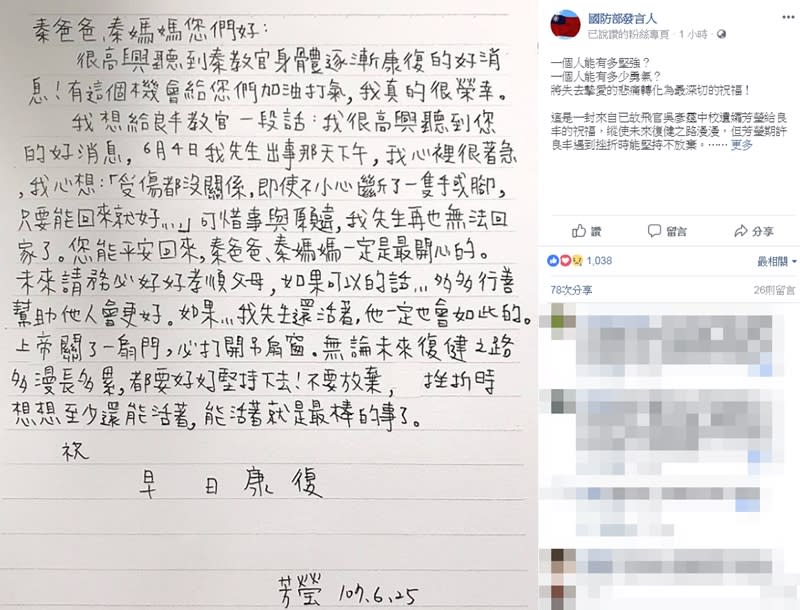 秦爸爸、秦媽媽您們好：
很高興聽到秦教官身體逐漸康復的好消
息！有這個機會給您們加油打氣，我真的很榮幸。
我想給良丰教官一段話：我很高興聽到您
的好消息，6月4日我先生出事那天下午，我心裡很著急
，我心想：「受傷都沒關係，即使不小心斷了一隻手或腳，
只要能回來就好...」可惜事與願違，我先生再也無法回
家了。您能平安回來，秦爸爸、秦媽媽一定是最開心的。
未來請務必好好孝順父母，如果可以的話...多多行善
幫助他人會更好。如果...我先生還活著，他一定也會如此的。
上帝關了一扇門，必打開另扇窗。無論未來復健之路
多漫長多累，都要好好堅持下去！不要放棄， 挫折時
想想至少還能活著，能活著就是最棒的事了。
祝
早日康復
芳瑩 107.6.25
國防部發言人
已說讚的粉絲專頁 · 1 小時 ·
一個人能有多堅強？
一個人能有多少勇氣？
將失去摯愛的悲痛轉化為最深切的祝福！
這是一封來自已故飛官吳彥霆中校遺孀芳瑩給良
丰的祝福，縱使未來復健之路漫漫，但芳瑩期許
良丰遇到挫折時能堅持不放棄。…… 更多
讚 留言 分享
1,038 最相關
78次分享 26則留言